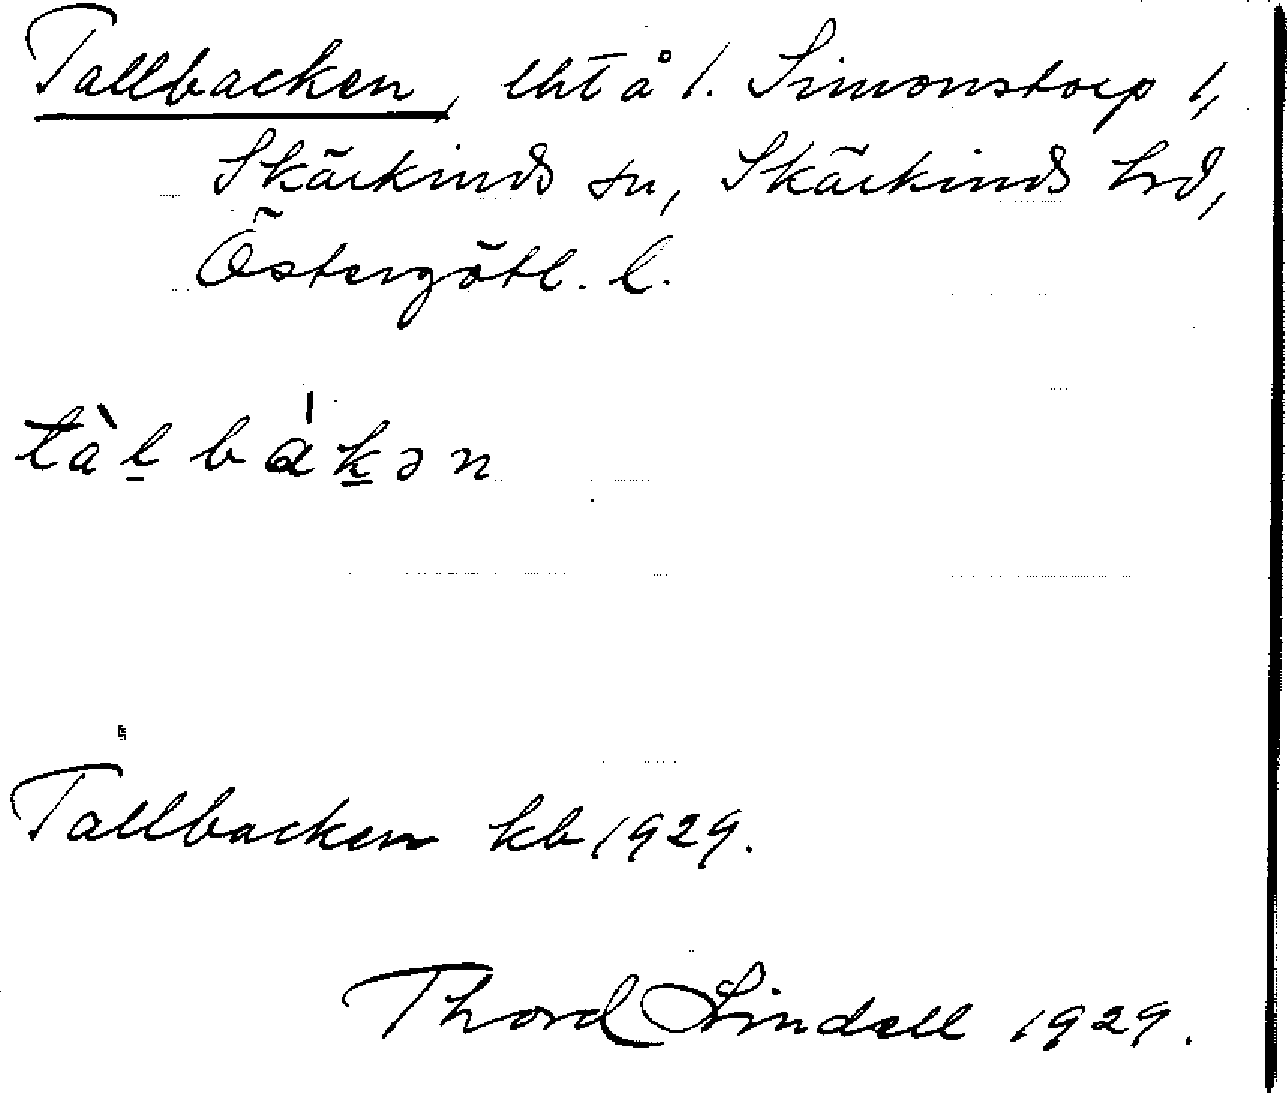 Tallbacken, lht å l. Simonstorp 1,
Skärkinds sn, Skärkinds hd,
Östergötl. l.
tàl̲ bák̲ən
Tallbacken kb 1929.
Thord Lindell 1929.